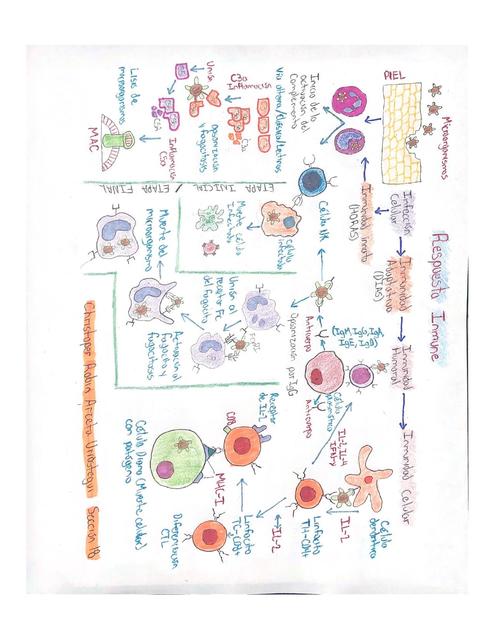 Respuesta Inmune
Microorganismos
PIEL
Infección
Celular
Inmunidad
Adaptativa
(DIAS)
Inmunidad
Humoral
Inmunidad Celular
Inmunidad Innata
(HORAS)
Inicio de la
activación del
Complemento
Vía Alterna/Clásica/Lectinas
C3a
Inflamación
Unión
Opsonización
y fagocitosis
Inflamación
C5a
Lisis de
microorganismo
MAC
ETAPA INICIAL
ETAPA FINAL
Célula NK
Célula
infectada
Muerte Célula
Infectada
(IgM, IgG, IgA
IgE, IgD)
Anticuerpo
Opsonización por IgG
Anticuerpo
Célula
plasmática
Unión al
receptor Fc
del fagocito
Activación del
fagocito y
fagocitosis
Muerte del
microorganismo
Célula
dendrítica
IL-1
IL-2, IL-4
IFN-γ
Linfocito
TH-CD4+
IL-2
Receptor
de IL-2
CD8
Linfocito
TC-CD8+
MHC-I
Célula Diana (Muerte celular)
con patógeno
Diferenciación
CTL
Christoper Aroldin Arcelia Uriostegui Sección